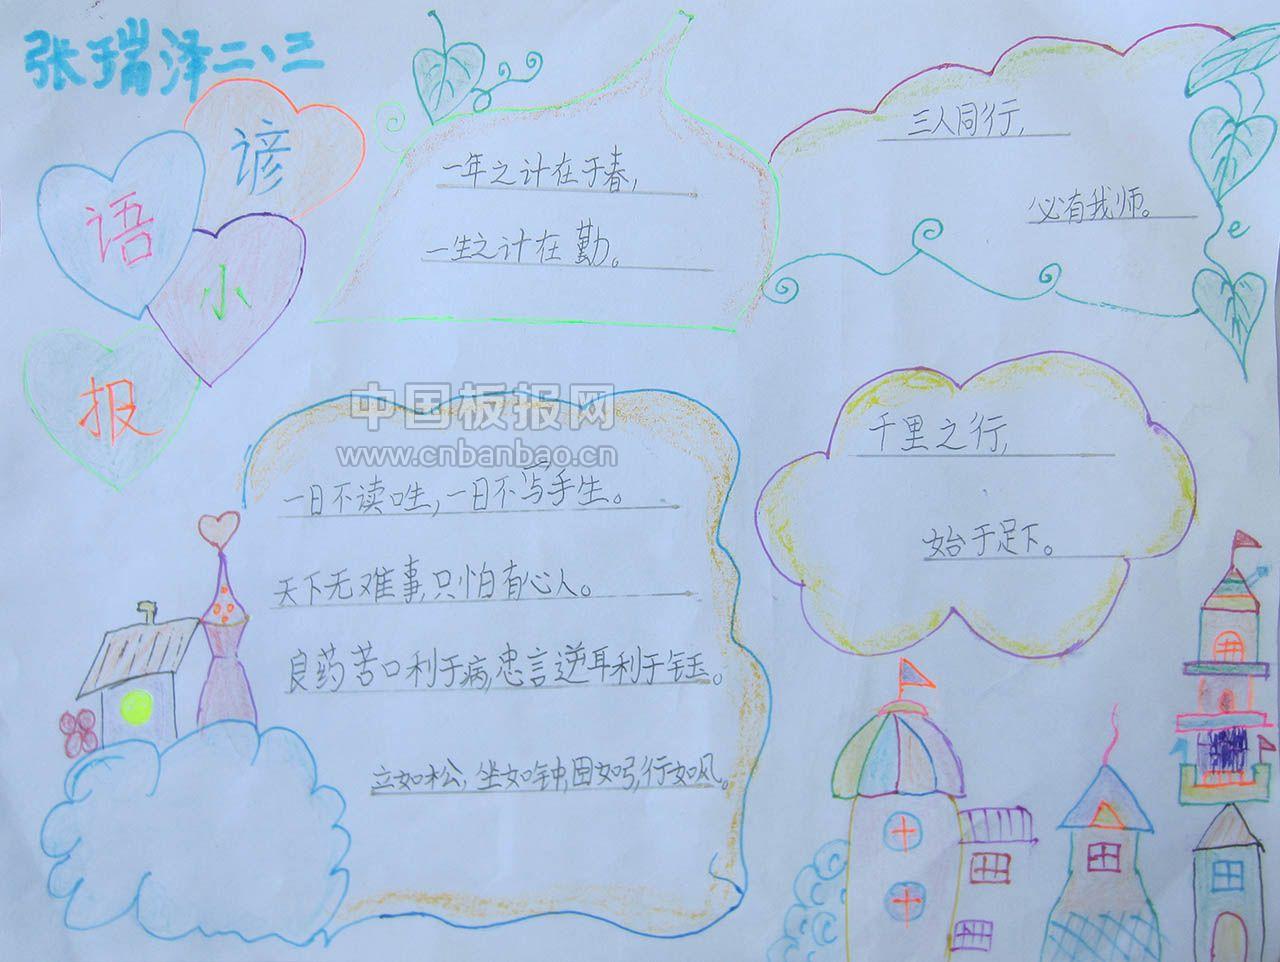 张瑞泽二、三
谚
语
小
报
一年之计在于春,
一生之计在勤。
三人同行,
必有我师。
中国板报网
www.cnbanbao.cn
一日不读口生,一日不写手生。
天下无难事,只怕有心人。
良药苦口利于病,忠言逆耳利于
立如松,坐如钟,卧如弓,行如风。
千里之行,
始于足下。